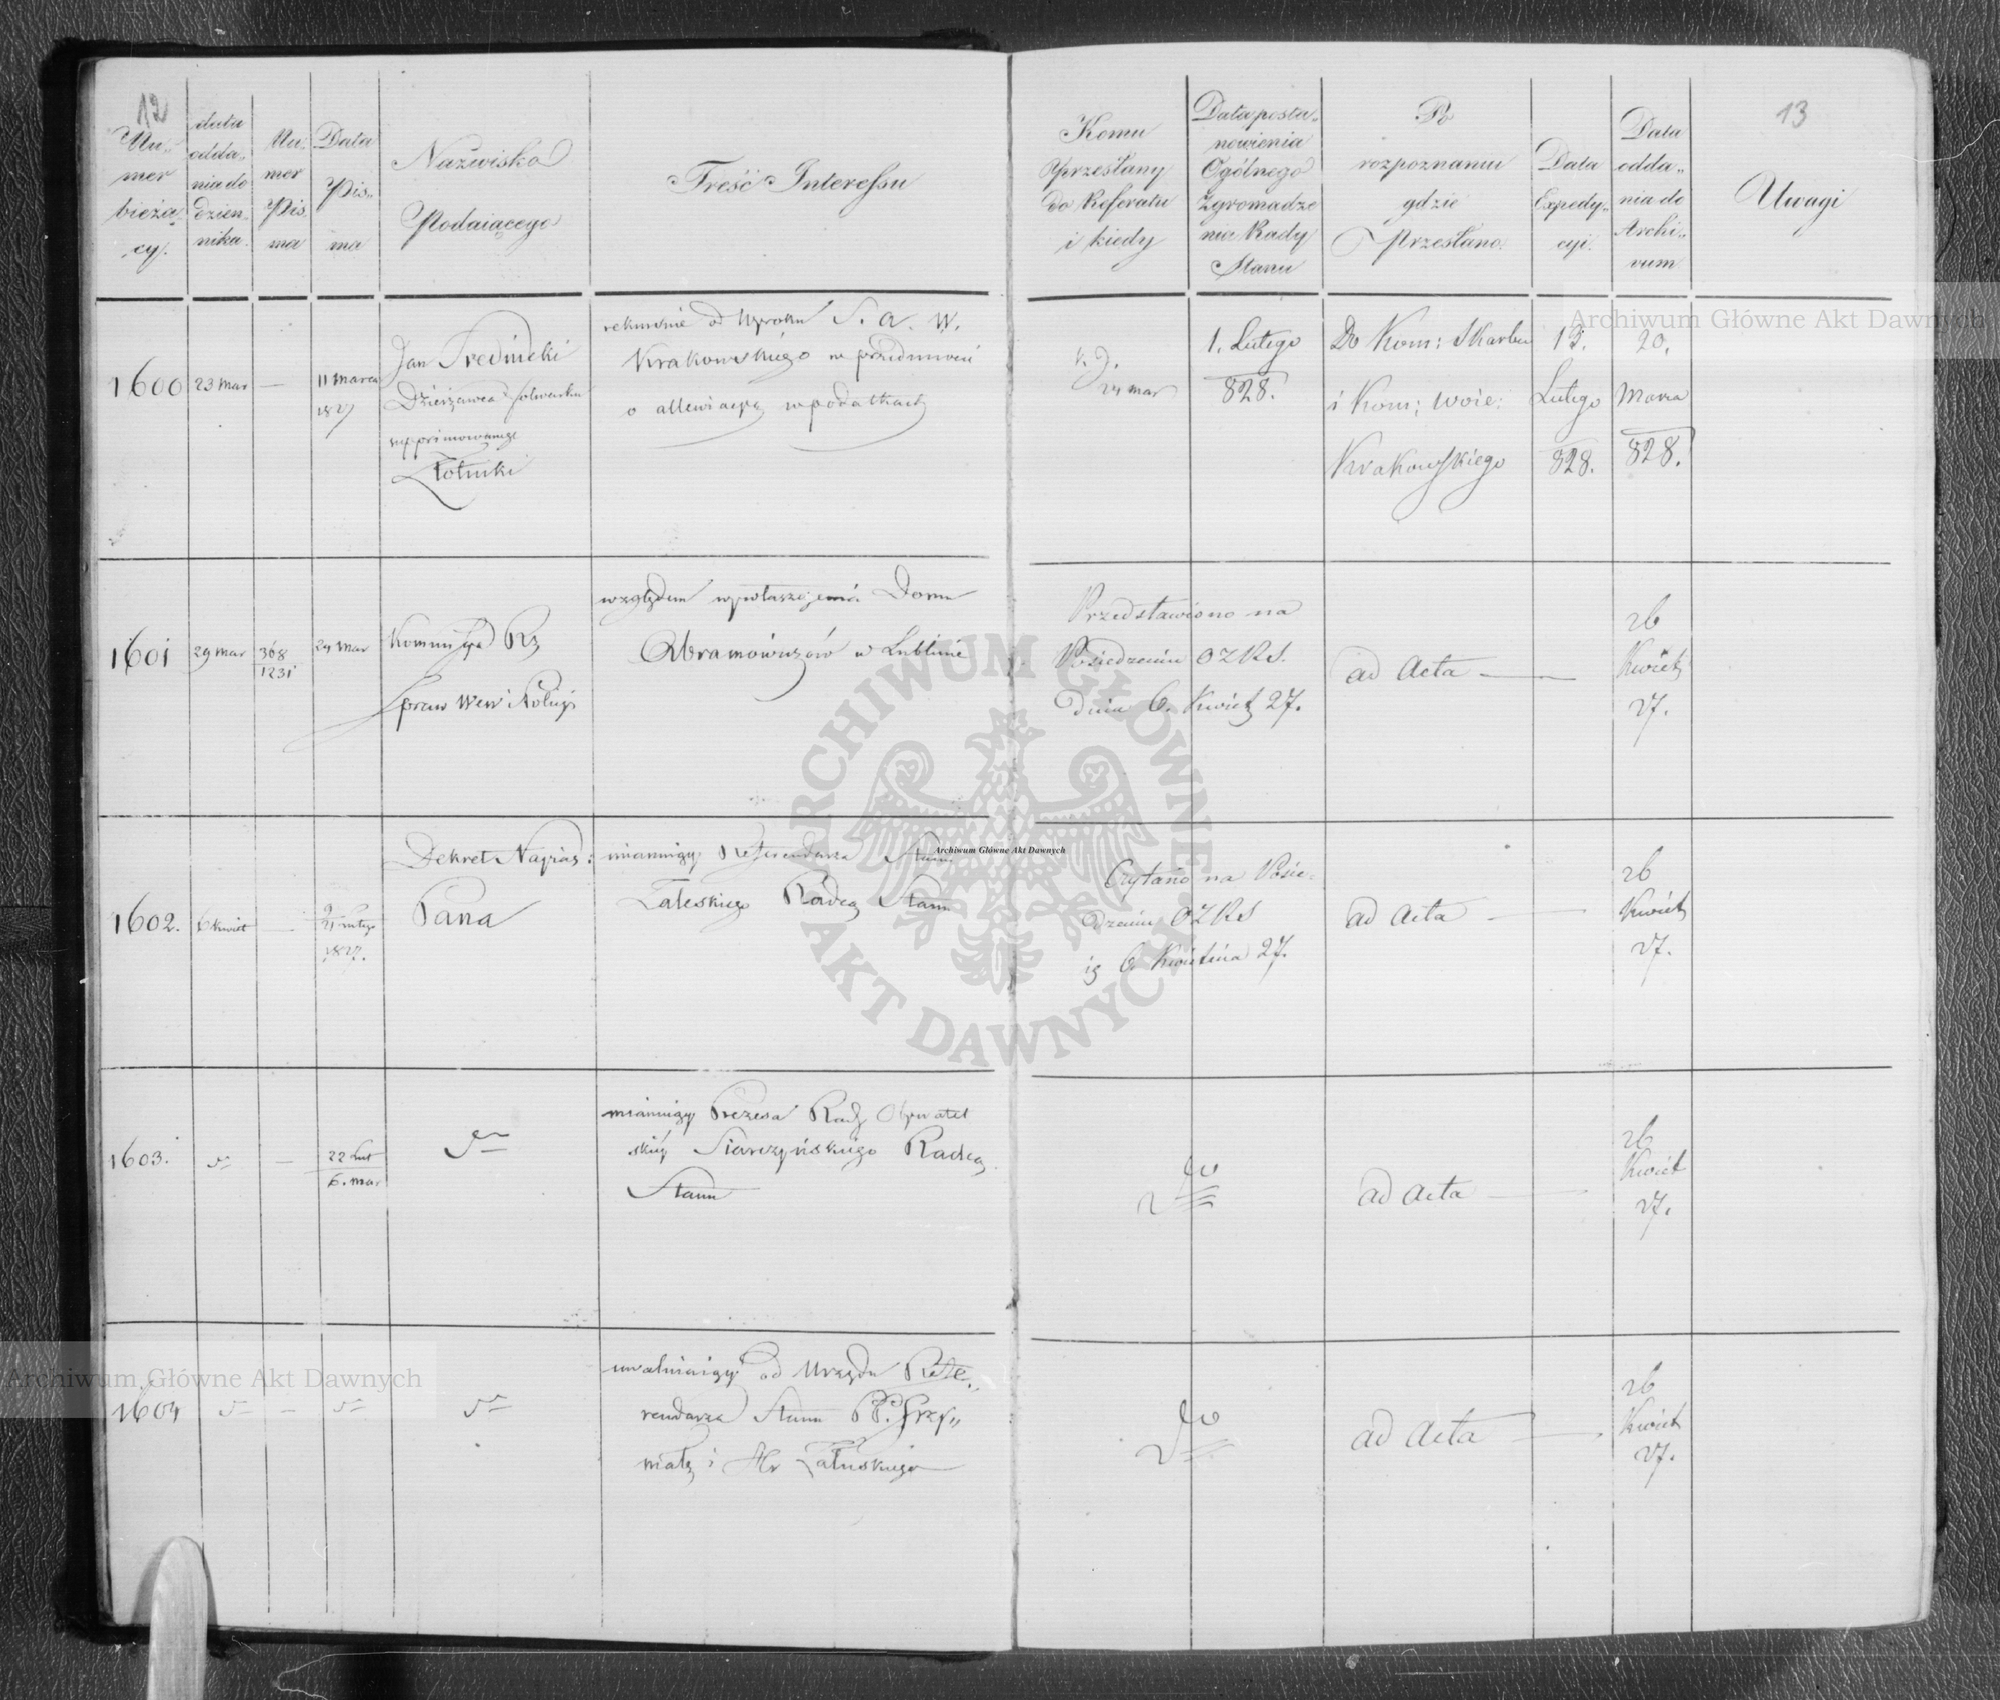 12
Nu-
mer
bieżą-
cy.
data
odda-
nia do
dzien-
nika.
Nu-
mer
Pis-
ma
Data
Pis-
ma
Nazwisko
Podaiącego
Treść Interessu
Komu
przesłany
do Referatu
i kiedy
Data posta-
nowienia
Ogólnego
Zgromadze
nia Rady
Stanu
Po
rozpoznaniu
gdzie
Przesłano.
Data
Expedy-
cyi.
Data
odda-
nia do
Archi-
vum
13
Uwagi
1600
23 Mar
—
11 Marca
1827
Jan Srednicki
Dzierżawca folwarku
suppri­mowanego
Złotniki
rekursie od Wyroku S. A. W.
Krakowskiego w przedmiocie
o allewiacyą w podatkach
24 mar
1. Lutego
828.
Do Kom: Skarbu
i Kom: Woie:
Krakowskiego
13.
Lutego
828.
20.
Marca
828.
1601
29 Mar
368
1231
24 Mar
Kommissya Rz
Spraw Wew i Policyi
względem wywłaszczenia Domu
Abramowiczów w Lublinie
Przedstawiono na
Posiedzeniu OZRS.
dnia 6. Kwiet 27.
ad Acta —
26
Kwiet
27.
1602.
6 Kwiet
—
9
21 Lutego
1827.
Dekret Najias:
Pana
mianuiący Referendarza Stanu
Zaleskiego Radcą Stanu
Czytano na Posie-
dzeniu OZRS
6 Kwietnia 27.
ad Acta —
26
Kwiet
27.
1603.
—
22 Lut
6. Mar
mianuiący Prezesa Rady Obywatel
skiey Siarczyńskiego Radcą
Stanu
do
ad Acta —
26
Kwiet
27.
1604
—
uwalniaiący od Urzędu Refe-
rendarza Stanu PP. Grzy-
małę i Hr Załuskiego
do
ad Acta —
26
Kwiet
27.
Archiwum Główne Akt Dawnych
Archiwum Główne Akt Dawnych
Archiwum Główne Akt Dawnych
ARCHIWUM GŁÓWNE AKT DAWNYCH